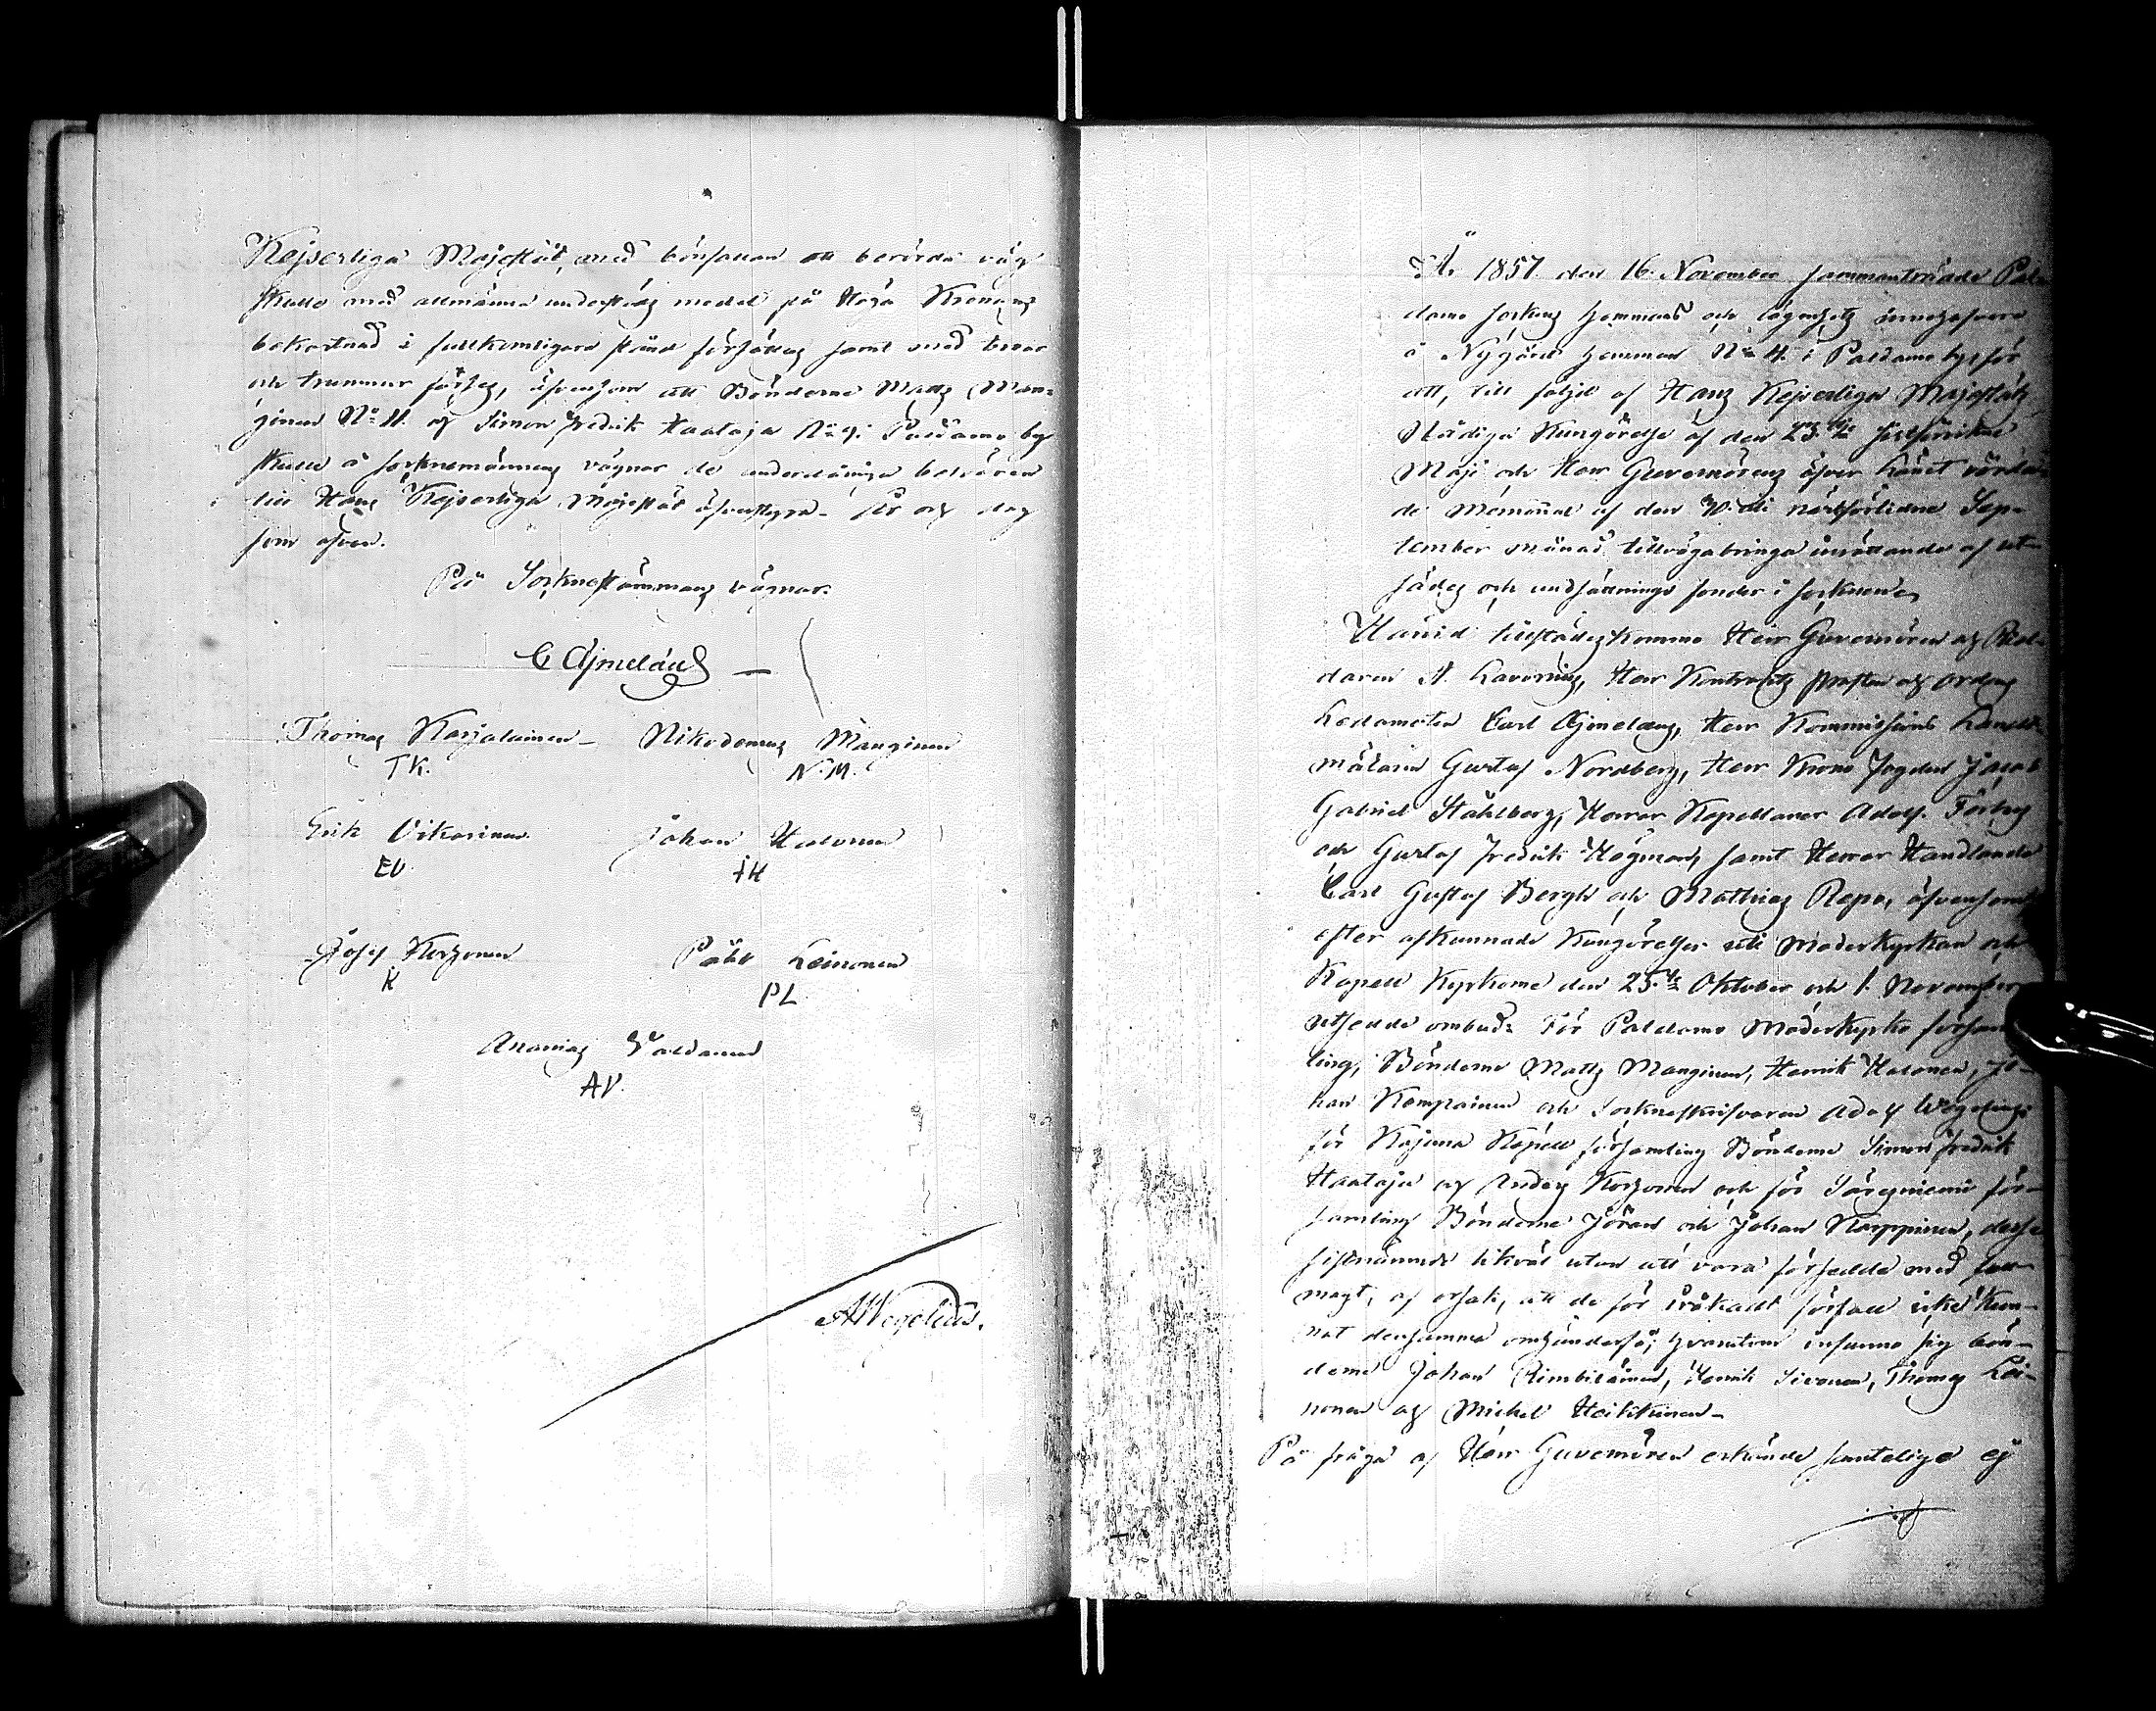 Kejserliga Majestät, med bönfallan att berörda väg
skulle med allmänna understöds medel på Höga Kronans
bekostnad i fullkomligare stånd försättas samt med broar
och trummor förses, äfvensom att Bönderne Matts Man-
ginen No 11. och Simon Fredrik Haataja No 9. i Paldamo by
skulle å Socknemännens vägnar de underdåniga besvären
till Hans Kejserliga Majestät öfverstyra. År och dag
som ofvan.
På Sockneståmmans vägnar.
C Ajmelæus
Thomas Karjalainen Nikodemus Manginen
TK. N.M.
Erik Vikarinen Johan Halonen
EV. JH
Josef Korhonen Påhl Leinonen
K PL
Ananias Valdanen
AV.
AWegelius.
År 1857 den 16 November sammanträdde Pal-
damo Sockens hemmans och lägenhets innehafvare
å Nygård hemman No 4. i Paldamo by för
att, till följd af Hans Kejserliga Majestäts
Nådiga Kungörelse af den 25te sistförvikne
Maji och Herr Guvernörens öfver Länet vördan-
de Memorial af den 30de nästförlidne Sep-
tember månad tillvägabringa inrättande af ut-
sädes och undsättnings fonder i Socknen
Härvid tillstädeskommo Herr Guvernören och Rid-
daren A. Lavonius, Herr Kontrakts Prosten och Ordens
Ledamoten Carl Ajmelæus, Herr Kommissions Landt-
mätaren Gustaf Nordberg, Herr Krono Fogden Jacob
Gabriel Ståhlberg, Herrar Kapellaner Adolf
och Gustaf Fredrik Högman, samt Herrar Handlande
Carl Gustaf Bergh och Mathias Repo, äfvensom
efter afkunnade Kungörelser uti Moderkyrkan och
Kapell Kyrkorne den 25te Oktober och 1. November
utsedde ombud: För Paldamo Moderkyrko försam-
ling, Bönderne Matts Manginen, Henrik Halonen, Jo-
han Kemppainen och Sockneskrifvaren Adolf Wegelius;
för Kajana Kapell församling Bönderne Simon Fredrik
Haataja och Anders Korhonen och för Säresniemi för-
samling Bönderne Jöran och Johan Karppinen, desse
sistnämnde likväl utan att vara försedde med full-
magt, af orsak, att de för iråkadt förfall icke kun-
nat densamma omhändertaga; hvarutom infunno sig bön-
derne Johan Rimbiläinen, Henrik Sivonen, Thomas Lei-
nonen och Michel Heikkinen.
På fråga af Herr Guvernören erkände samtelige ej